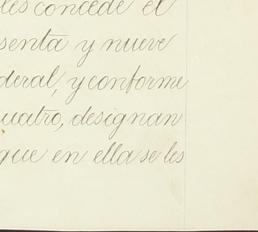 les concede el
senta y nueve
deral, y conforme
uatro, designan
que en ella se les